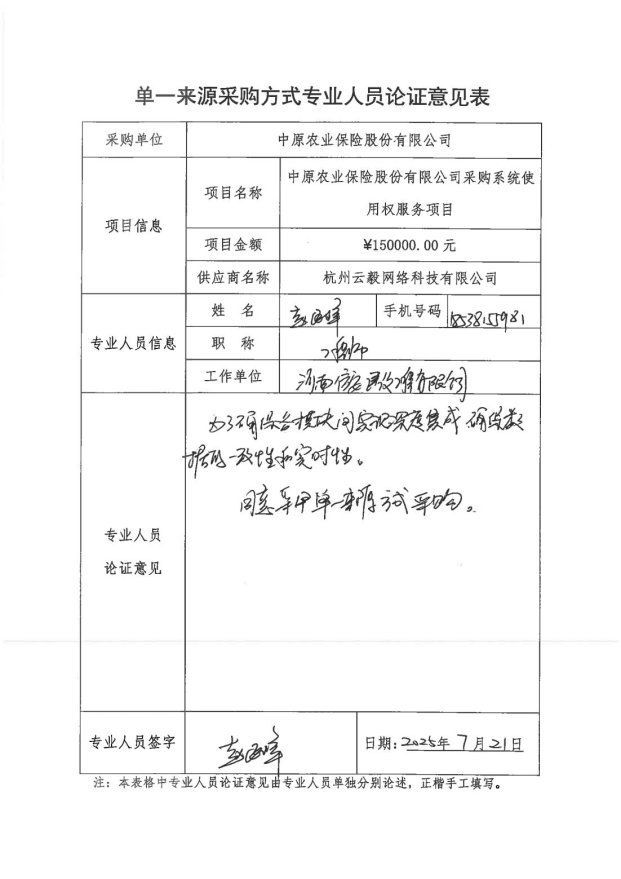 单一来源采购方式专业人员论证意见表
采购单位
中原农业保险股份有限公司
项目信息
项目名称
中原农业保险股份有限公司采购系统使
用权服务项目
项目金额
¥150000.00 元
供应商名称
杭州云毅网络科技有限公司
专业人员信息
姓 名
手机号码
职 称
工程师
工作单位
河南信安
有限公司
专业人员
论证意见
为了确保各模块间实现深度集成 确保数
据的一致性和实时性。
同意采用单一来源方式采购。
专业人员签字
日期:2025年 7月21日
注:本表格中专业人员论证意见由专业人员单独分别论述,正楷手工填写。